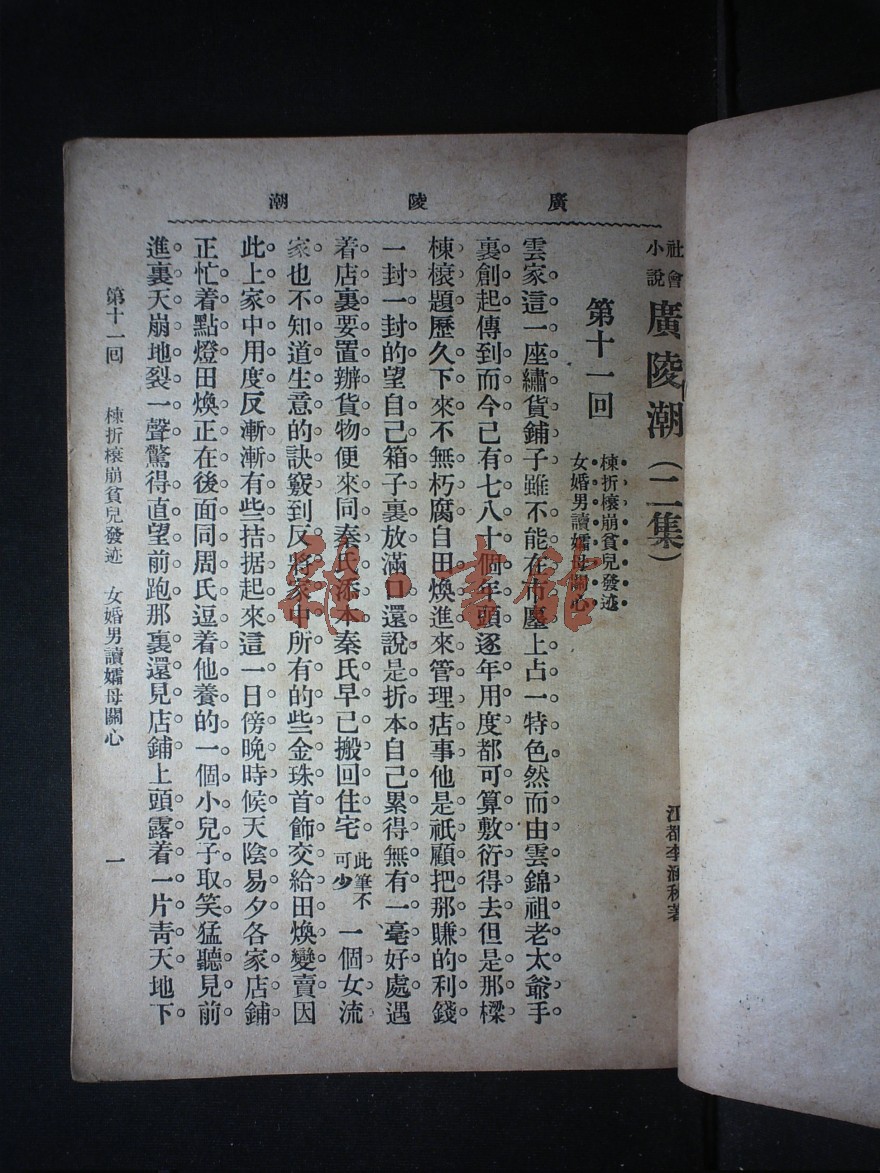 廣陵潮
社會小說 廣陵潮（二集）
江都李涵秋著
第十一回
棟折榱崩貧兒發迹
女婚男讀孀母關心
雲家這一座繡貨鋪子雖不能在市廛上占一特色然而由雲錦祖老太爺手
裏創起傳到而今已有七八十個年頭逐年用度都可算敷衍得去但是那樑
棟榱題歷久下來不無朽腐自田煥進來管理店事他是祇顧把那賺的利錢
一封一封的望自己箱子裏放滿口還說是折本自己累得無有一毫好處遇
着店裏要置辦貨物便來同秦氏添本秦氏早已搬回住宅此筆不可少一個女流
家也不知道生意的訣竅到反將家中所有的些金珠首飾交給田煥變賣因
此上家中用度反漸漸有些拮据起來這一日傍晚時候天陰易夕各家店鋪
正忙着點燈田煥正在後面同周氏逗着他養的一個小兒子取笑猛聽見前
進裏天崩地裂一聲驚得直望前跑那裏還見店鋪上頭露着一片靑天地下
第十一回 棟折榱崩貧兒發迹 女婚男讀孀母關心 一
雜書館